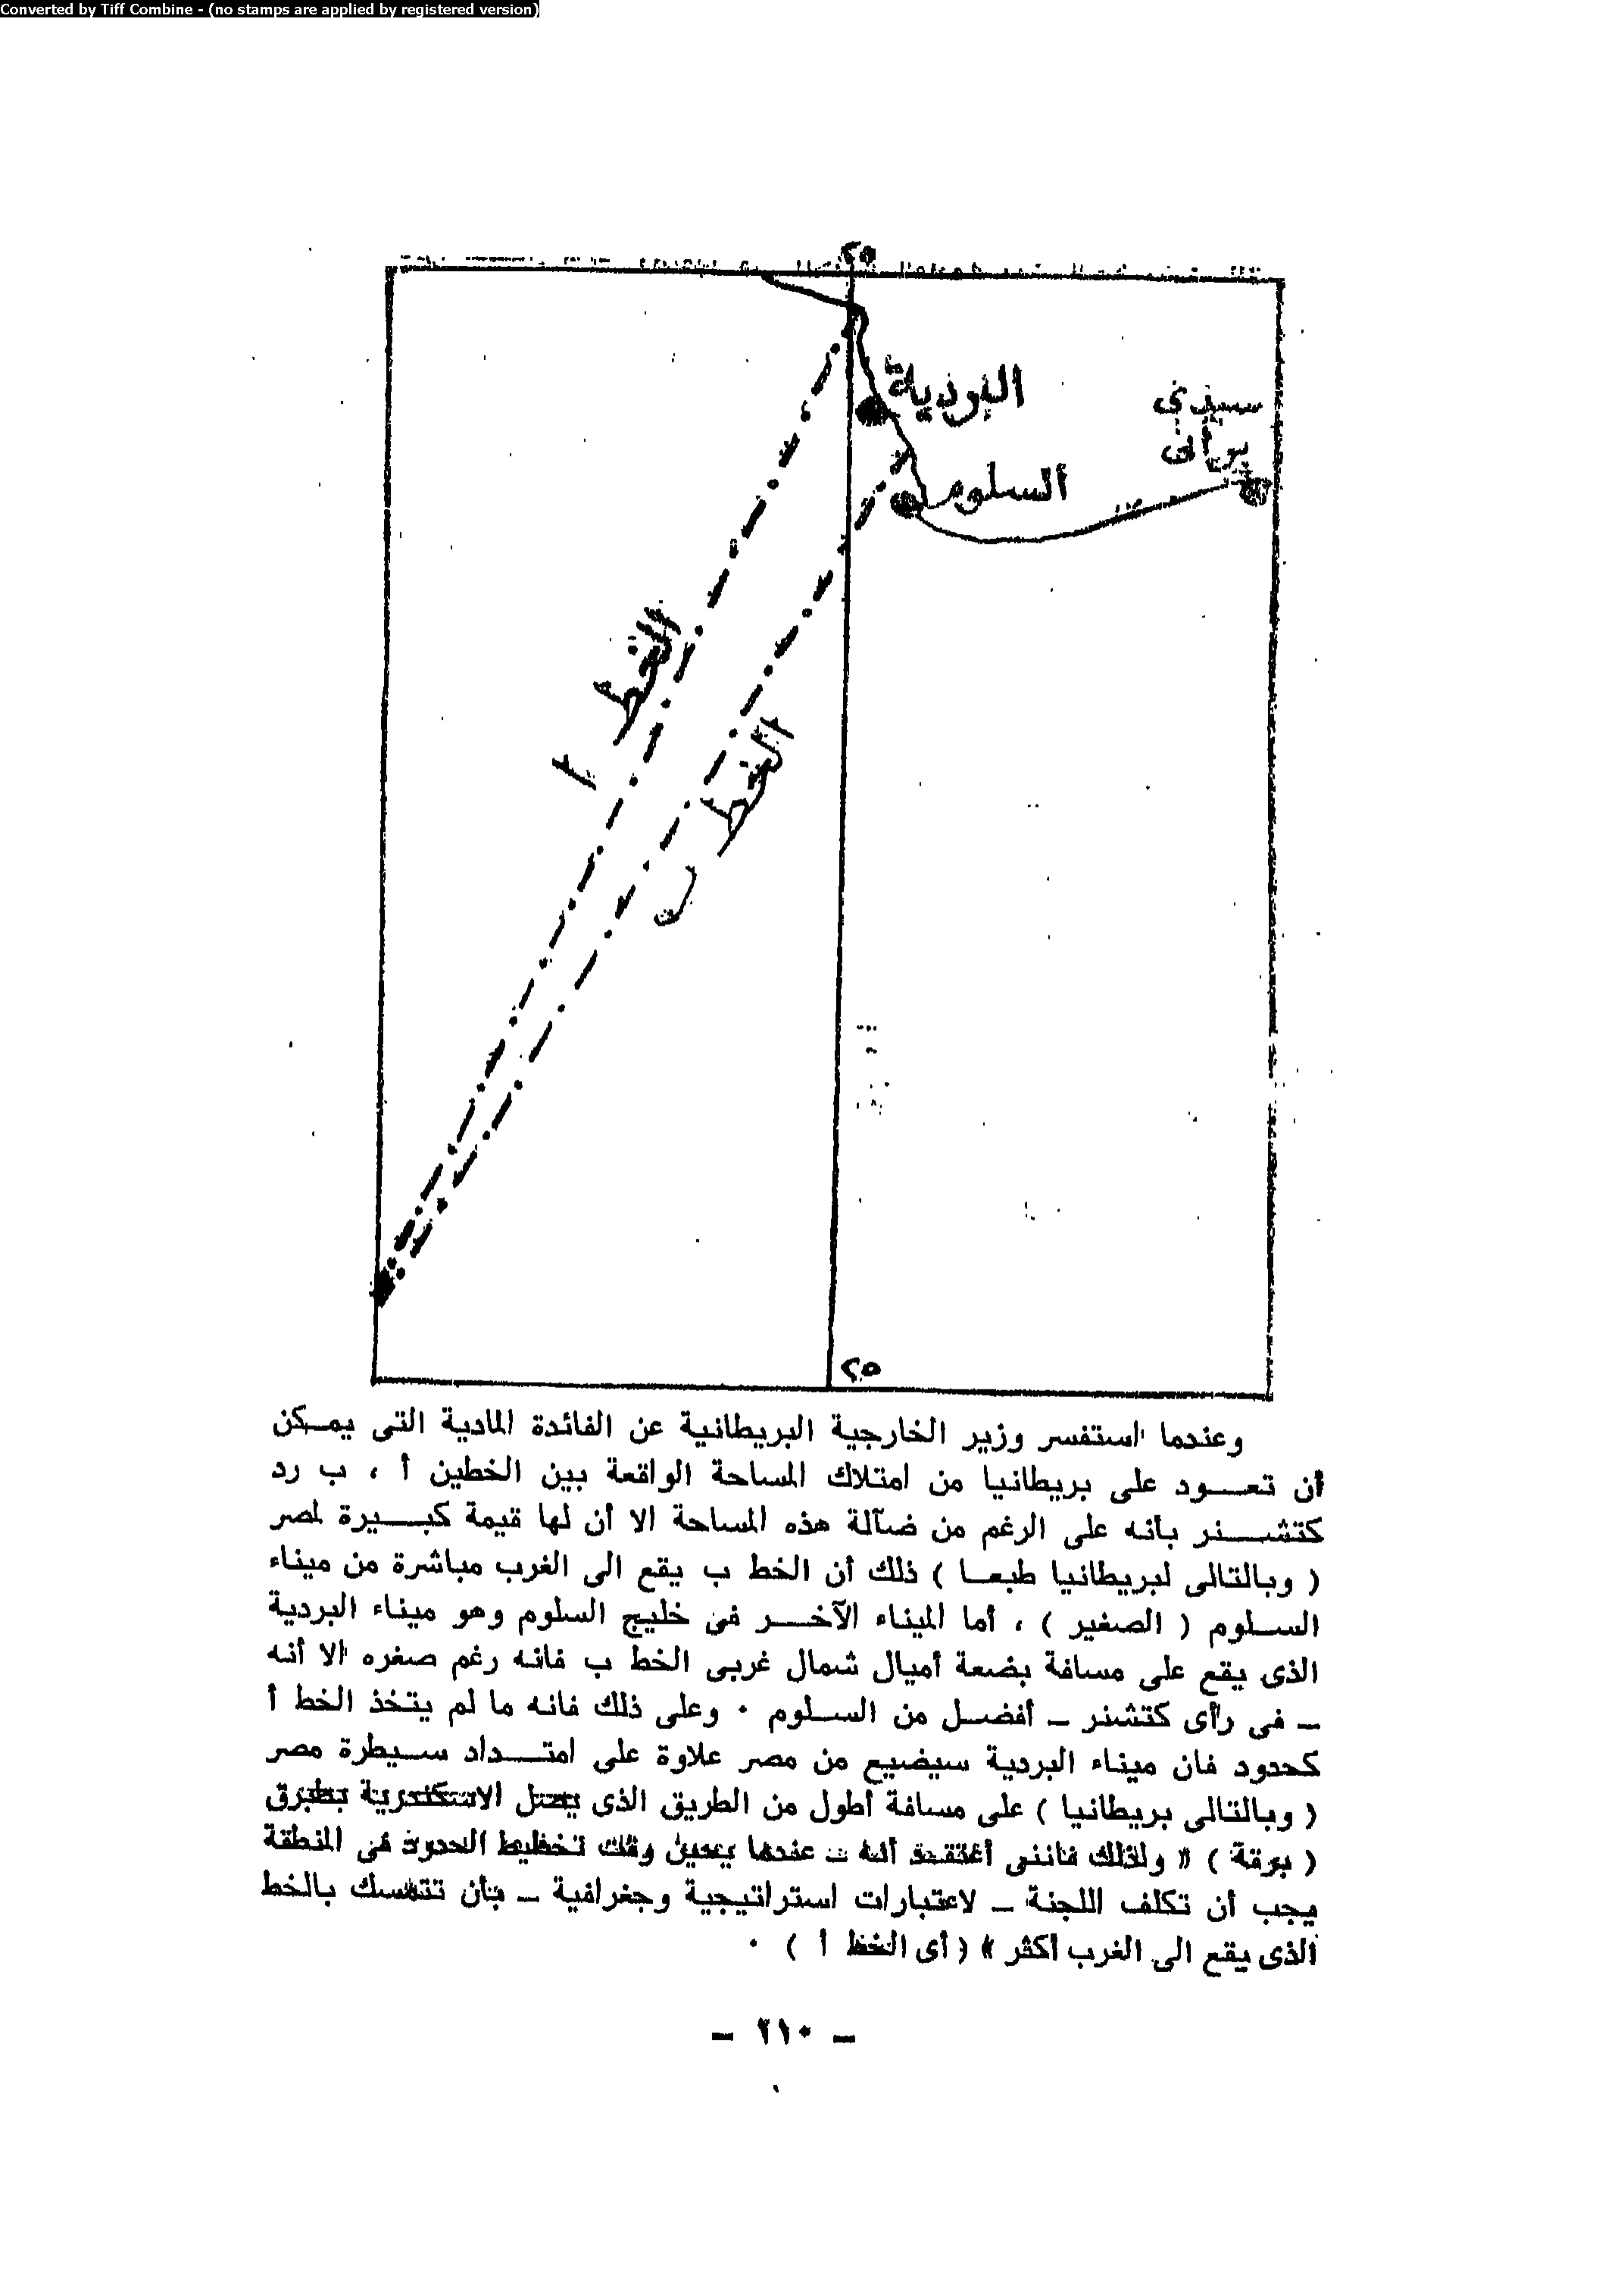 Converted by Tiff Combine - (no stamps are applied by registered version)
٢٥
البردية
سيدي
براني
السلوم
الخط أ
الخط ب
٢٥
وعندما استفسر وزير الخارجية البريطانية عن الفائدة المادية التى يمكن
أن تعود على بريطانيا من امتلاك المساحة الواقعة بين الخطين أ ، ب رد
كتشنر بأنه على الرغم من ضآلة هذه المساحة الا أن لها قيمة كبيرة لمصر
( وبالتالى لبريطانيا طبعا ) ذلك أن الخط ب يقع الى الغرب مباشرة من ميناء
السلوم ( الصغير ) ، أما الميناء الآخر فى خليج السلوم وهو ميناء البردية
الذى يقع على مسافة بضعة أميال شمال غربى الخط ب فانه رغم صغره الا أنه
– فى رأى كتشنر – أفضل من السلوم ٠ وعلى ذلك فانه ما لم يتخذ الخط أ
كحدود فان ميناء البردية سيضيع من مصر علاوة على امتداد سيطرة مصر
( وبالتالى بريطانيا ) على مسافة أطول من الطريق الذى يصل الاسكندرية بطبرق
( برقة ) « ولذلك فاننى أعتقد أنه – عندما يحين وقت تخطيط الحدود فى المنطقة
يجب أن تكلف اللجنة – لاعتبارات استراتيجية وجغرافية – بأن تتمسك بالخط
الذى يقع الى الغرب أكثر » ( أى الخط أ ) ٠
– ٢١٠ –